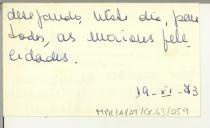 desejando, neste dia, para
todos, as maiores feli-
cidades.
19-XI-83
MPR/APAT/CX.43/059